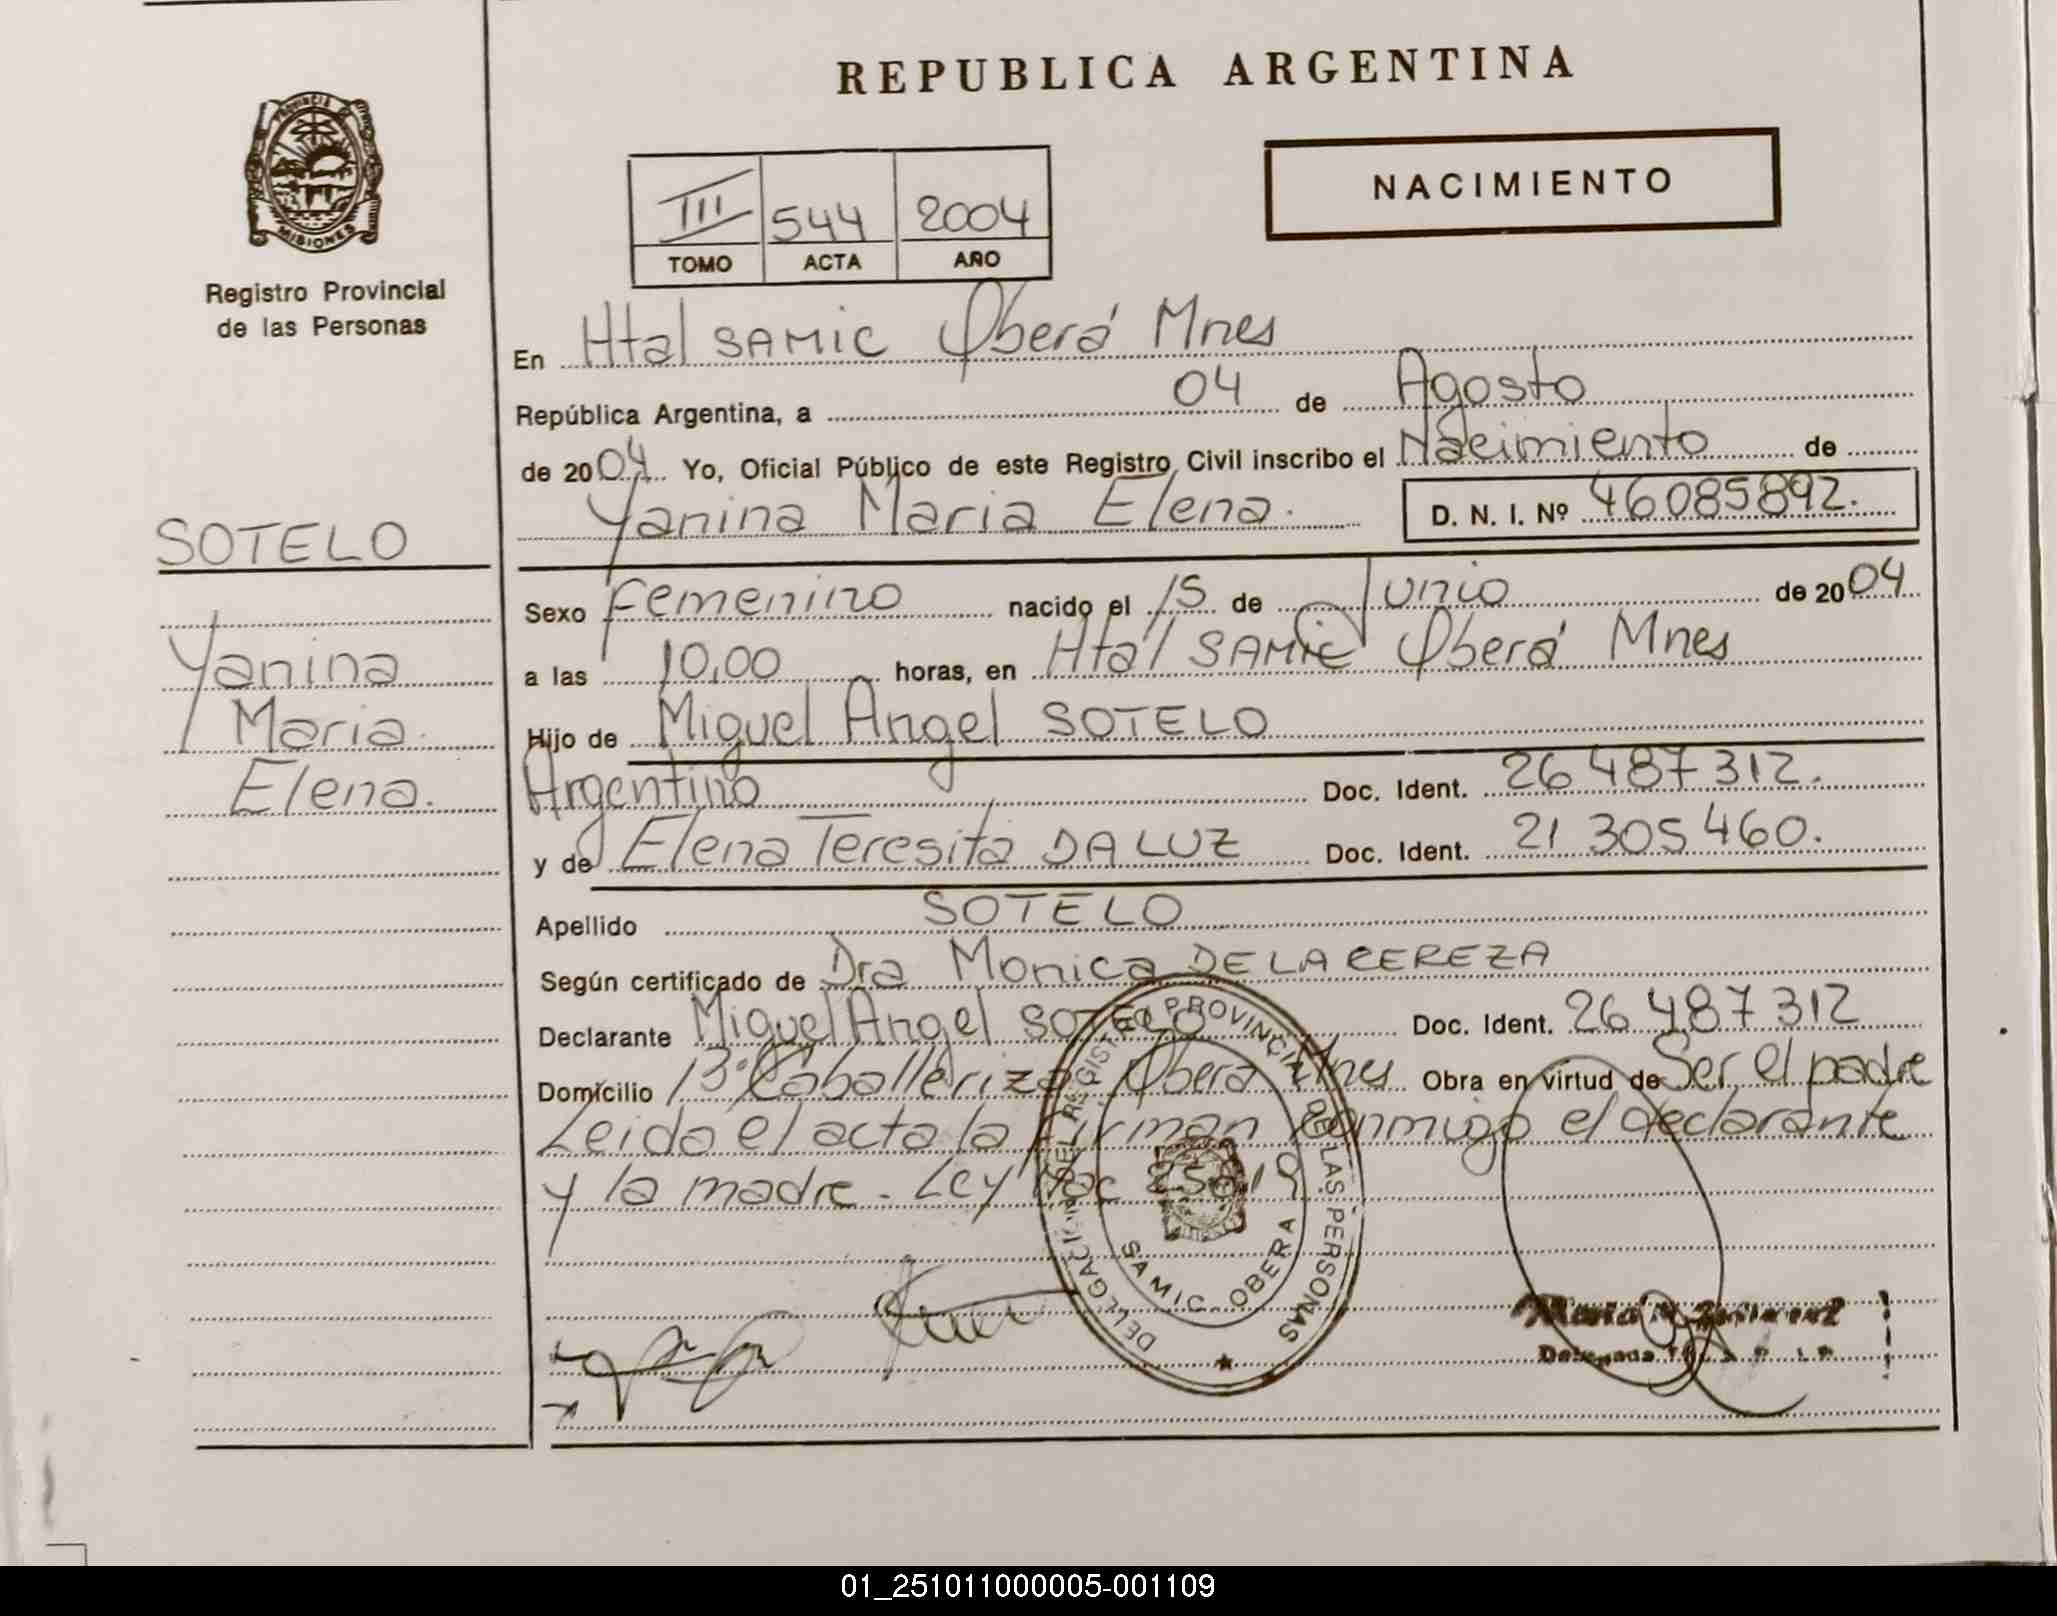 REPUBLICA ARGENTINA
PROVINCIA
MISIONES
Registro Provincial
de las Personas
III 544 2004
TOMO ACTA AÑO
NACIMIENTO
En Htal SAMIC Oberá Mnes
República Argentina, a 04 de Agosto
de 2004 Yo, Oficial Público de este Registro Civil inscribo el Nacimiento de
Yanina Maria Elena. D. N. I. Nº 46085892.
SOTELO
Yanina
Maria
Elena.
Sexo Femenino nacido el 15 de Junio de 2004
a las 10,00 horas, en Htal SAMIC Oberá Mnes
Hijo de Miguel Angel SOTELO
Argentino Doc. Ident. 26 487 312.
y de Elena Teresita DA LUZ Doc. Ident. 21 305 460.
Apellido SOTELO
Según certificado de Dra Monica DE LA CEREZA
Declarante Miguel Angel SOTELO Doc. Ident. 26 487 312
Domicilio 13º Caballeriza Oberá Mnes Obra en virtud de Ser el padre
Leido el acta la firman conmigo el declarante
y la madre. Ley Nac
DELEGACION DEL REGISTRO PROVINCIAL DE LAS PERSONAS
SAMIC OBERA
Maria
Delegada
01_251011000005-001109